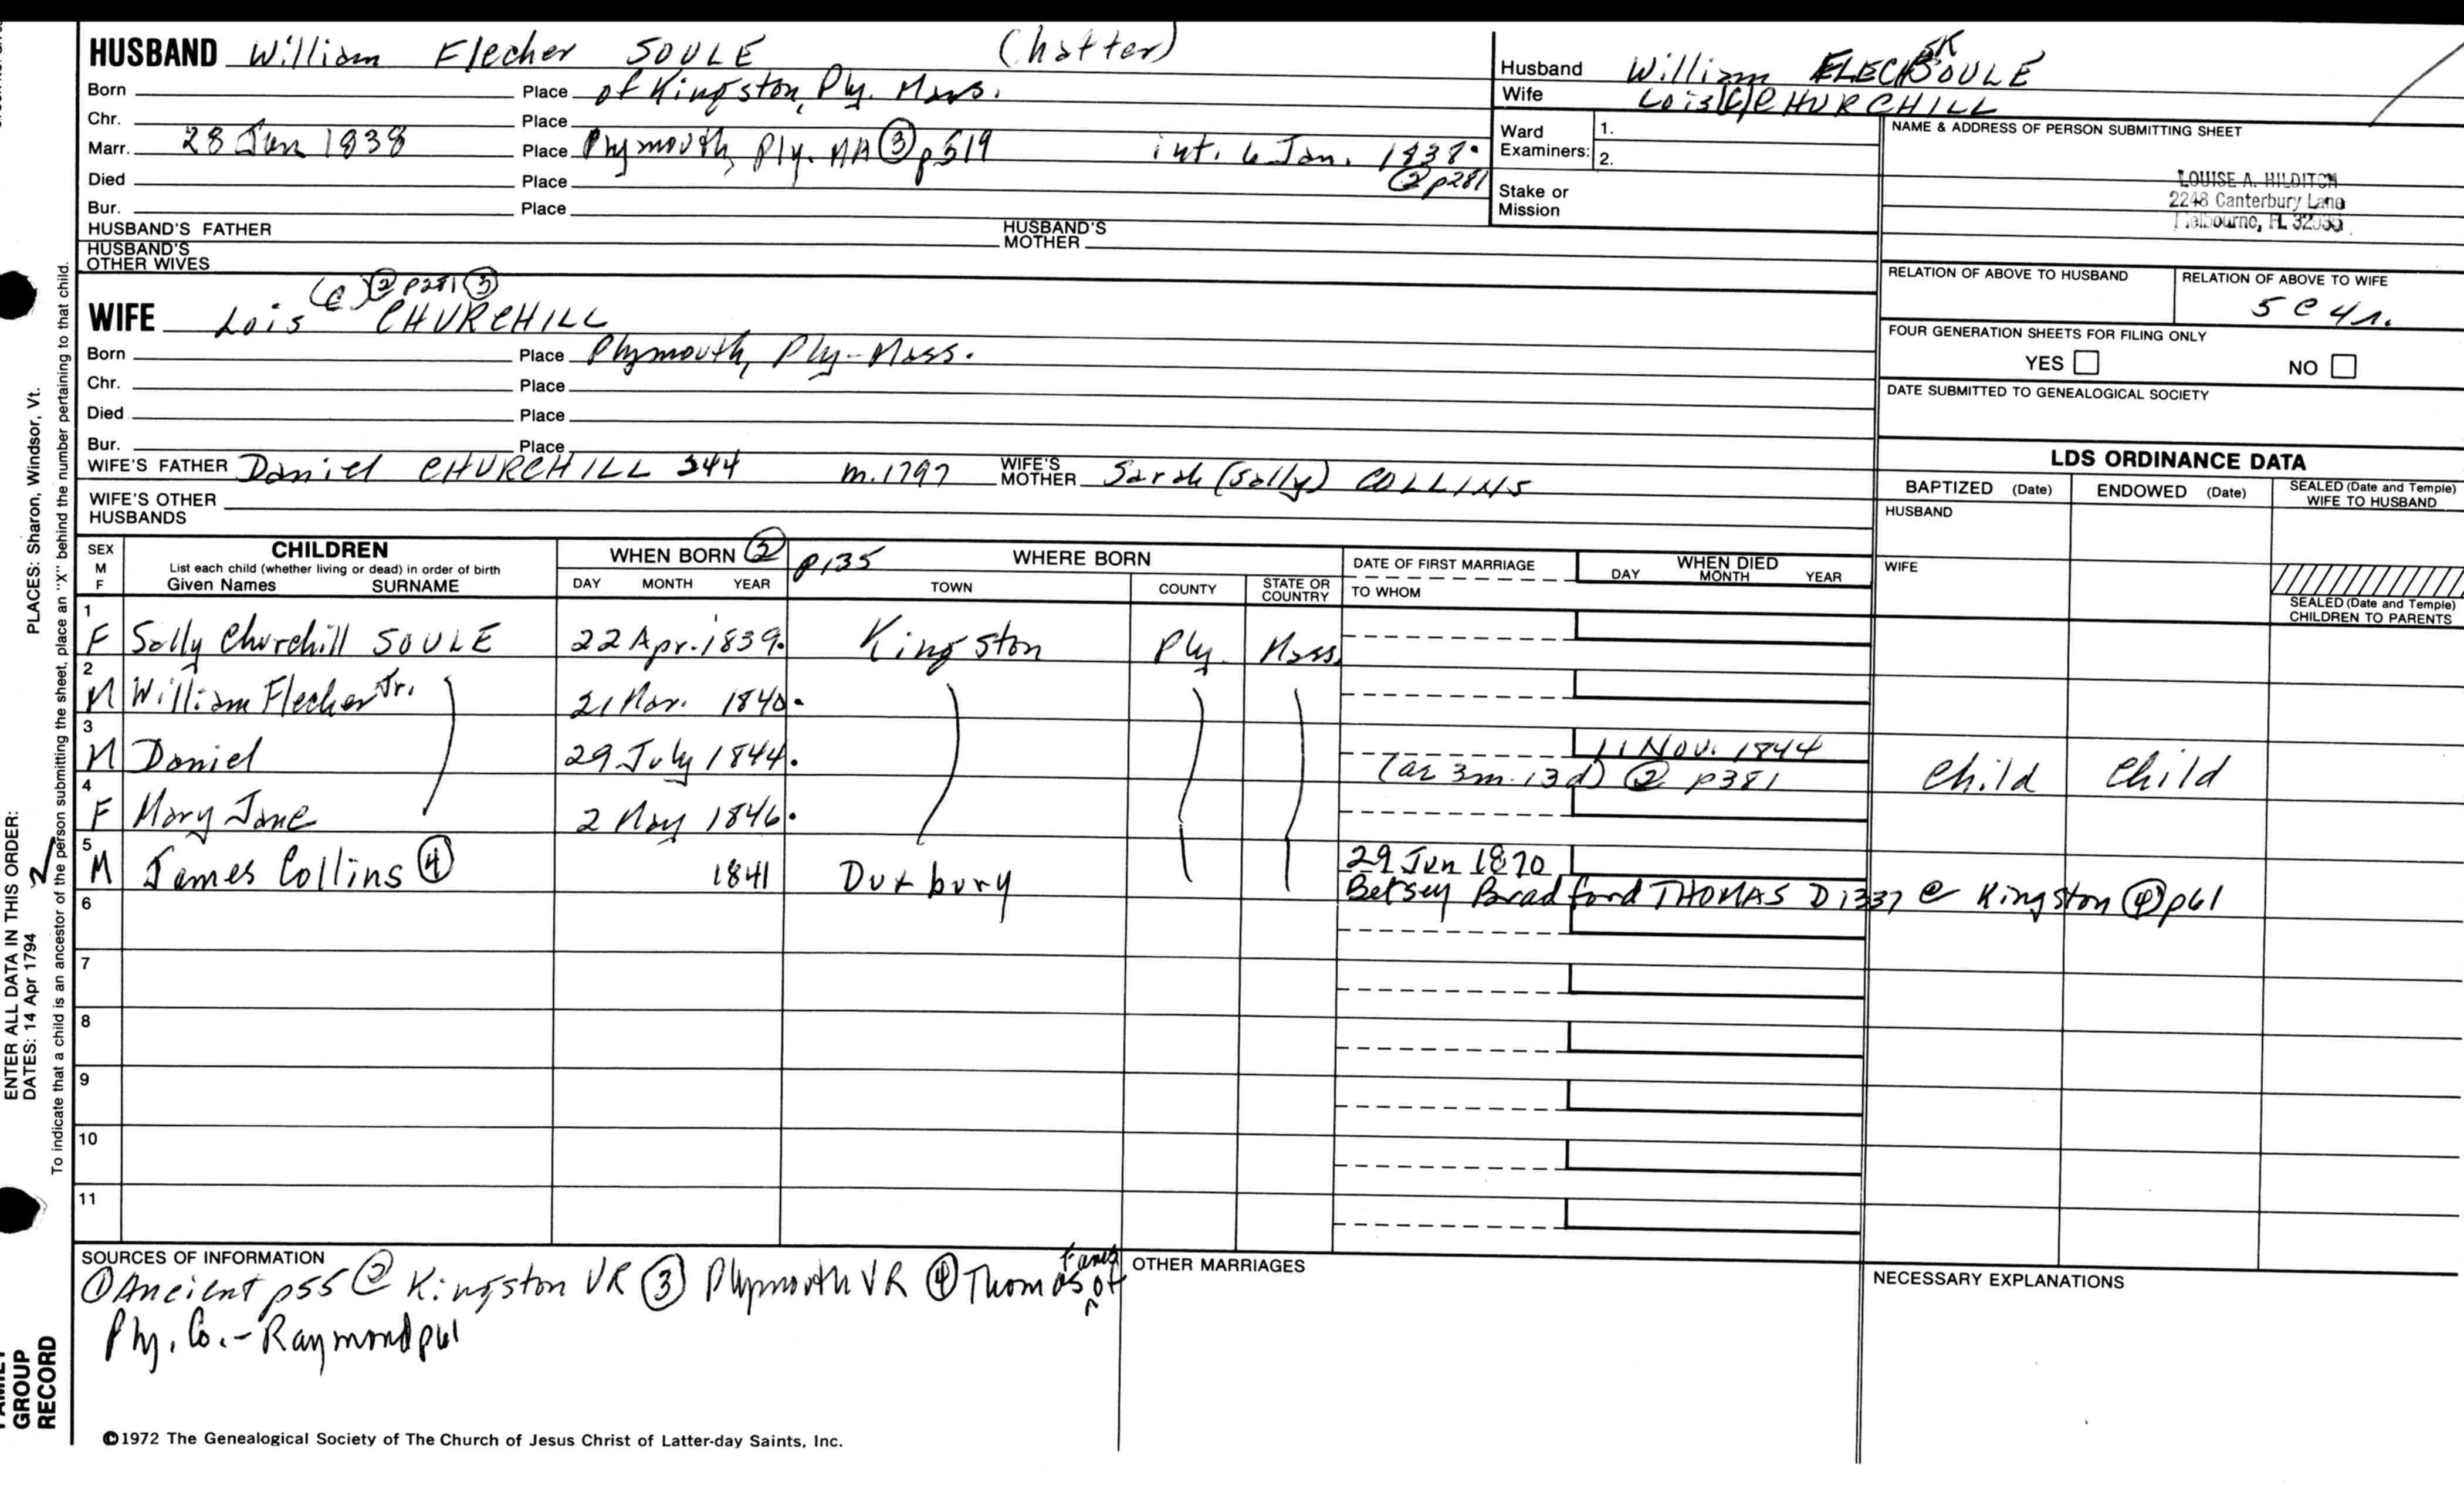 HUSBAND William Flecher SOULE (hatter)
Born Place of Kingston, Ply. Mass.
Chr. Place
Marr. 28 Jan 1838 Place Plymouth, Ply. MA ③ p519 int. 6 Jan. 1838.
② p281
Died Place
Bur. Place
HUSBAND'S FATHER HUSBAND'S MOTHER
HUSBAND'S OTHER WIVES
Husband William SOULE
Wife Lois (C) CHURCHILL
Ward Examiners: 1.
2.
Stake or Mission
NAME & ADDRESS OF PERSON SUBMITTING SHEET
LOUISE A. HILDITCH
2248 Canterbury Lane
Melbourne, FL
RELATION OF ABOVE TO HUSBAND RELATION OF ABOVE TO WIFE
5 C 4 r.
FOUR GENERATION SHEETS FOR FILING ONLY
YES NO
DATE SUBMITTED TO GENEALOGICAL SOCIETY
(C) ② p281 ③
WIFE Lois CHURCHILL
Born Place Plymouth, Ply-Mass.
Chr. Place
Died Place
Bur. Place
WIFE'S FATHER Daniel CHURCHILL 344 m. 1797 WIFE'S MOTHER Sarah (Sally) COLLINS
WIFE'S OTHER HUSBANDS
LDS ORDINANCE DATA
BAPTIZED (Date) ENDOWED (Date) SEALED (Date and Temple) WIFE TO HUSBAND
HUSBAND
WIFE
SEALED (Date and Temple) CHILDREN TO PARENTS
SEX M F
CHILDREN
List each child (whether living or dead) in order of birth
Given Names SURNAME
WHEN BORN ② p135
DAY MONTH YEAR
WHERE BORN
TOWN COUNTY STATE OR COUNTRY
DATE OF FIRST MARRIAGE
TO WHOM
WHEN DIED
DAY MONTH YEAR
1 F Sally Churchill SOULE 22 Apr. 1839. Kingston Ply. Mass.
2 M William Flecher Jr. 21 Mar. 1840.
3 M Daniel 29 July 1844. 11 Nov. 1844
(ae 3m. 13d) ② p381 child child
4 F Mary Jane 2 May 1846.
5 M James Collins ④ 1841 Duxbury 29 Jun 1870
Betsey Bradford THOMAS D1337 @ Kingston ④ p61
6
7
8
9
10
11
SOURCES OF INFORMATION
① Ancient p55 ② Kingston VR ③ Plymouth VR ④ Thomas family of
Ply. Co. - Raymond p61
OTHER MARRIAGES
NECESSARY EXPLANATIONS
©1972 The Genealogical Society of The Church of Jesus Christ of Latter-day Saints, Inc.
ENTER ALL DATA IN THIS ORDER:
DATES: 14 Apr 1794
PLACES: Sharon, Windsor, Vt.
To indicate that a child is an ancestor of the person submitting the sheet, place an "X" behind the number pertaining to that child.
GROUP
RECORD